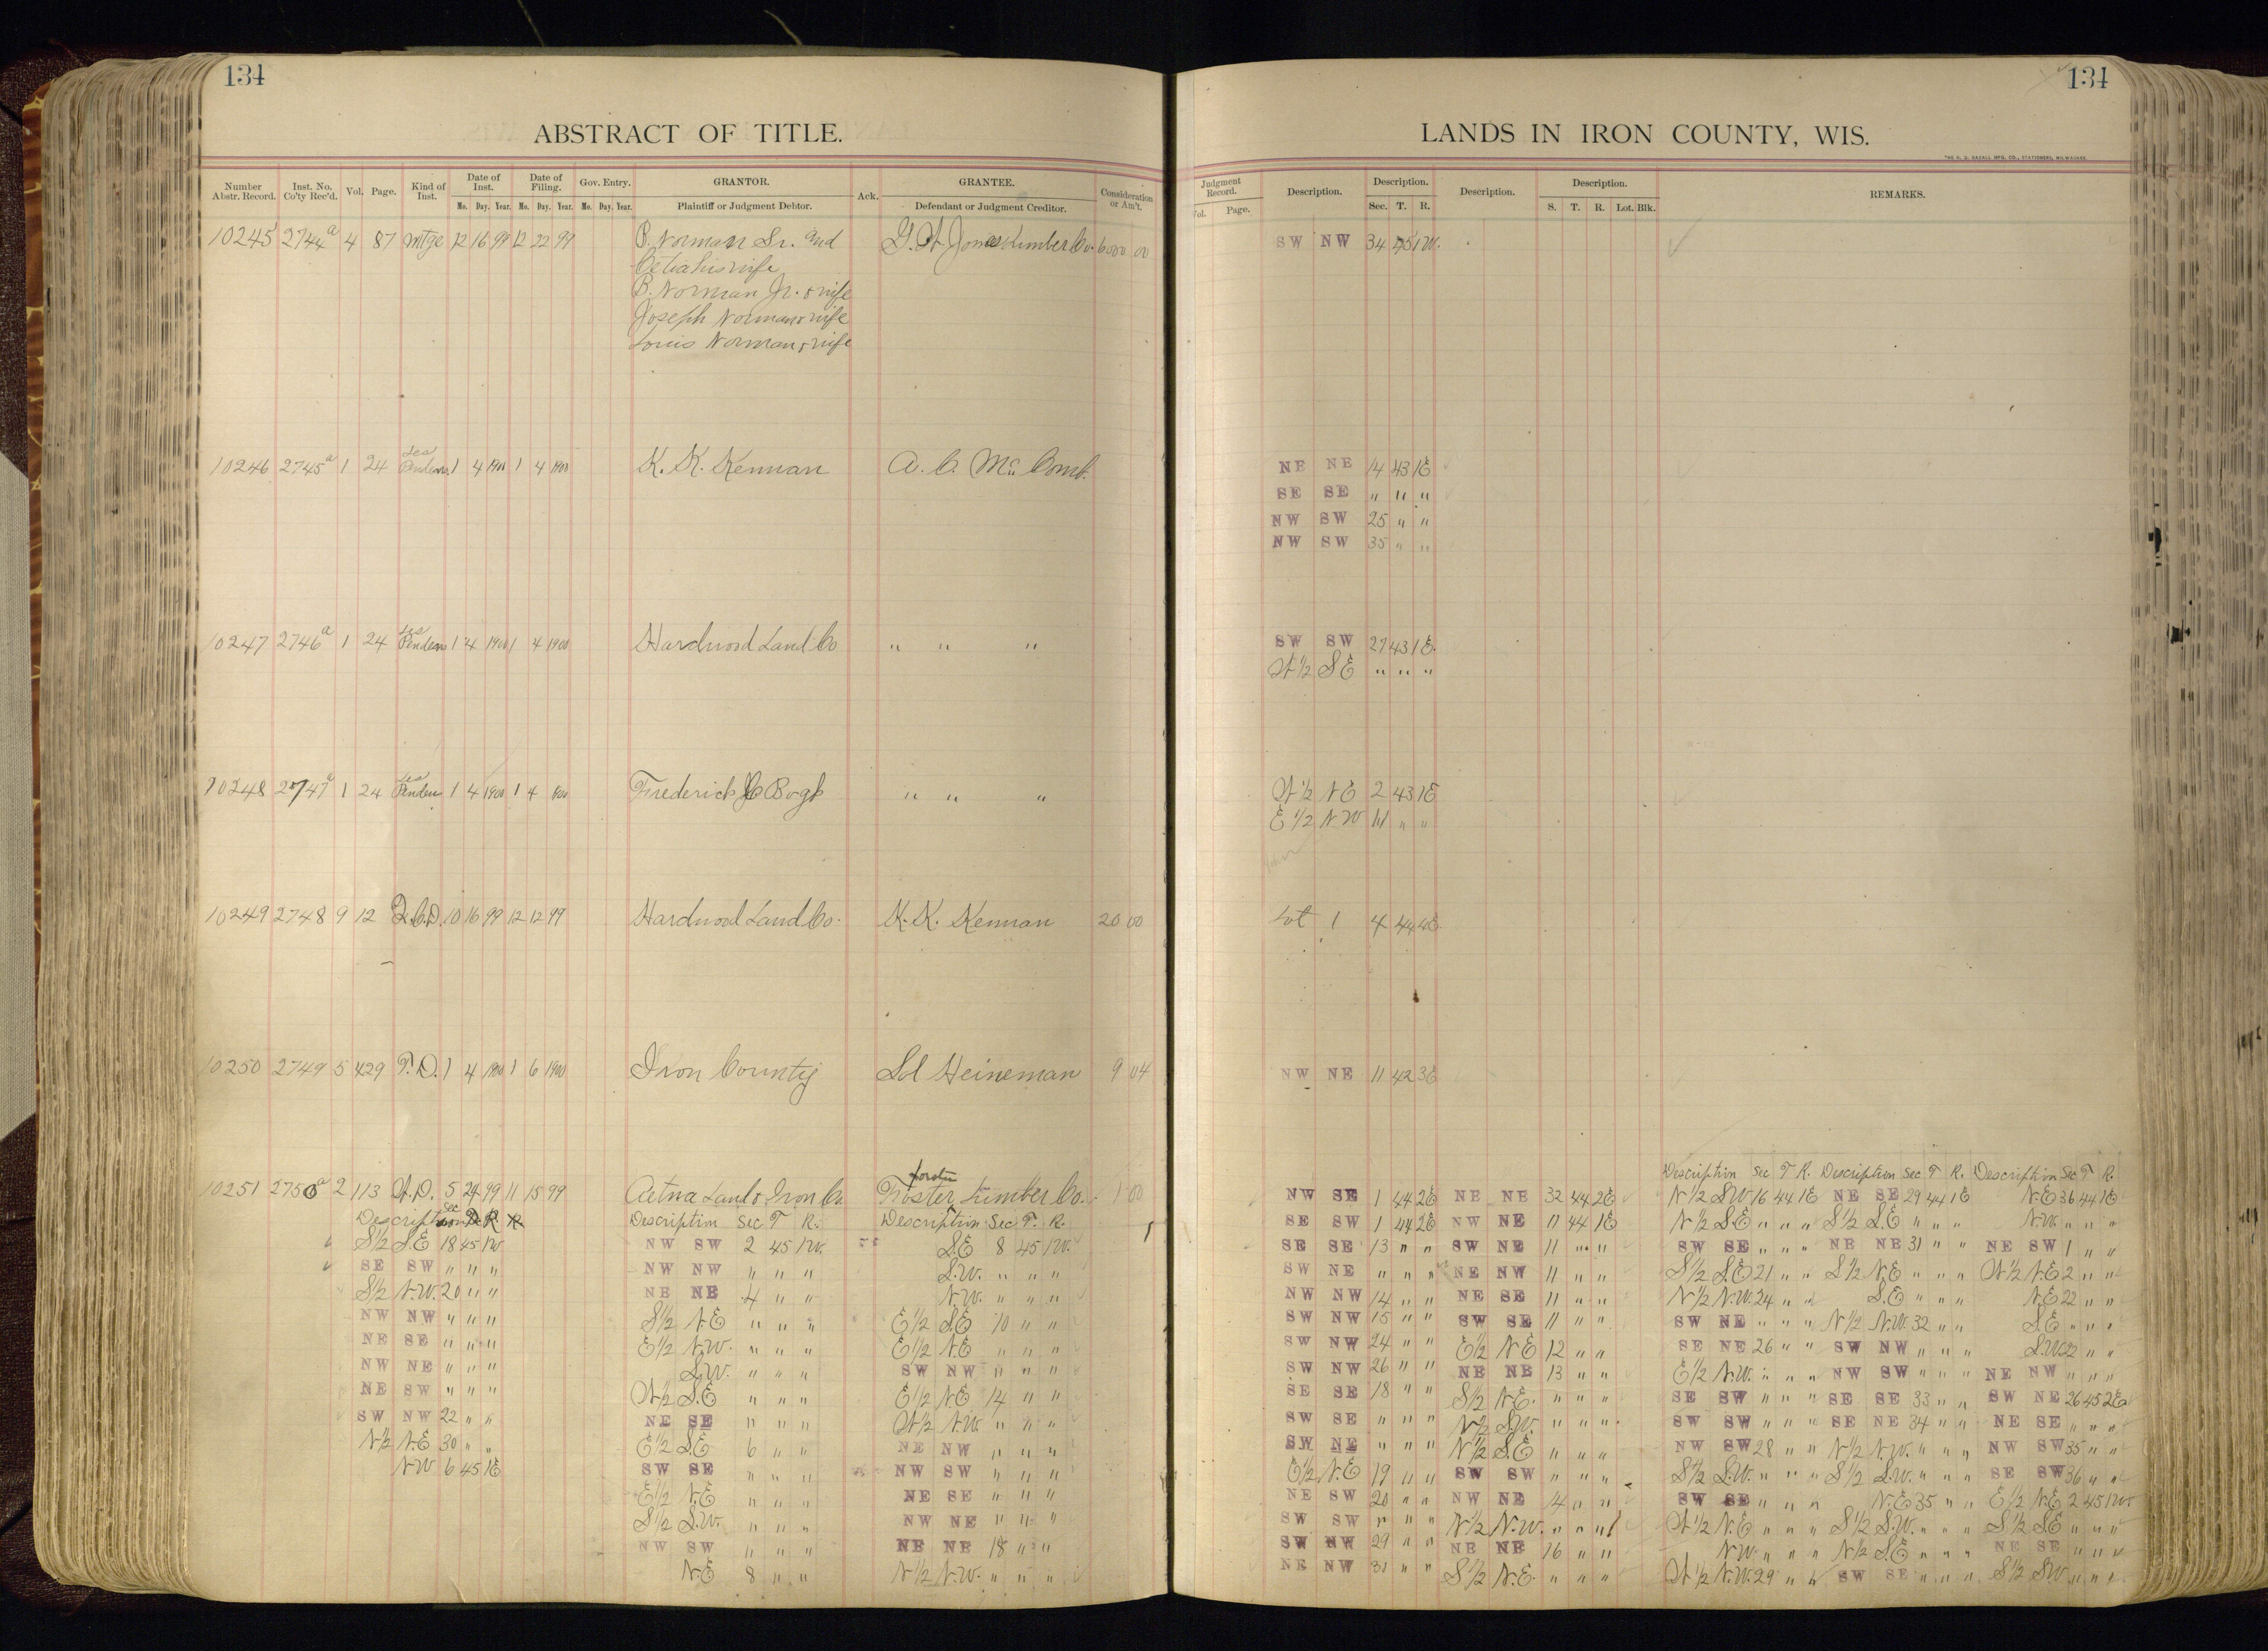 134
ABSTRACT OF TITLE.
Number Abstr. Record. Inst. No. Co'ty Rec'd. Vol. Page. Kind of Inst. Date of Inst. Date of Filing. Gov. Entry. GRANTOR. Ack. GRANTEE. Consideration or Am't.
Mo. Day. Year. Mo. Day. Year. Mo. Day. Year. Plaintiff or Judgment Debtor. Defendant or Judgment Creditor.
10245 2744a 4 87 Mtge 12 16 99 12 22 99 B. Norman Sr. and G. W. Jones Lumber Co. 6000 00
his wife
B. Norman Jr. & wife
Joseph Norman & wife
Louis Norman & wife
10246 2745a 1 24 Les Pendens 1 4 1900 1 4 1900 K. K. Kennan A. C. McComb.
10247 2746a 1 24 Les Pendens 1 4 1900 1 4 1900 Hardwood Land Co " " "
10248 2747a 1 24 Les Pendens 1 4 1900 1 4 1900 Frederick " " "
10249 2748 9 12 Q.C.D. 10 16 99 12 12 99 Hardwood Land Co. K. K. Kennan 20 00
10250 2749 5 429 T.D. 1 4 1900 1 6 1900 Iron County Sol Heineman 9 04
10251 2750a 2 113 W.D. 5 24 99 11 15 99 Aetna Land & Iron Co. Foster Lumber Co. 1 00
Description Sec T. R. Description Sec T R. Description Sec T. R.
S1/2 S.E 18 45 1W NW SW 2 45 1W. S.E 8 45 1W.
SE SW " " " NW NW " " " S.W. " " "
S1/2 N.W. 20 " " NE NE 4 " " N.W. " " "
NW NW " " " S1/2 N.E " " " E1/2 S.E 10 " "
NE SE " " " E1/2 N.W. " " " E1/2 N.E " " "
NW NE " " " S.W. " " " SW NW " " "
NE SW " " " W1/2 S.E " " " E1/2 N.E 14 " "
SW NW 22 " " NE SE " " " W1/2 N.W. " " "
N1/2 N.E 30 " " E1/2 S.E 6 " " NE NW " " "
NW 6 45 1E SW SE " " " NW SW " " "
E1/2 N.E " " " NE SE " " "
S1/2 S.W. " " " NW NE " " "
NW SW " " " NE NE 18 " "
N.E 8 " " N1/2 N.W. " " "
134
LANDS IN IRON COUNTY, WIS.
THE H. G. RAZALL MFG. CO., STATIONERS, MILWAUKEE.
Judgment Record. Description. Description. Description. Description. REMARKS.
Vol. Page. Sec. T. R. S. T. R. Lot. Blk.
SW NW 34 45 1W.
NE NE 14 43 1E
SE SE " " "
NW SW 25 " "
NW SW 35 " "
SW SW 27 43 1E.
W1/2 S E " " "
W1/2 N E 2 43 1E
E1/2 N W 11 " "
Lot 1 4 44 4E
NW NE 11 42 3E
Description Sec T R. Description Sec T R. Description Sec T R.
NW SE 1 44 2E NE NE 32 44 2E N1/2 S.W 16 44 1E NE SE 29 44 1E N.E 36 44 1E
SE SW 1 44 2E NW NE 11 44 1E N1/2 S.E " " " S1/2 S.E " " " N.W. " " "
SE SE 13 " " SW NE 11 " " SW SE " " " NE NE 31 " " NE SW 1 " "
SW NE " " " NE NW 11 " " S1/2 S.E 21 " " S1/2 N.E " " " W1/2 N.E 2 " "
NW NW 14 " " NE SE 11 " " N1/2 N.W. 24 " " S.E " " " N.E 22 " "
SW NW 15 " " SW SE 11 " " SW NE " " " N1/2 N.W. 32 " " S.E " " "
SW NW 24 " " E1/2 N.E 12 " " SE NE 26 " " SW NW " " " S.W 22 " "
SW NW 26 " " NE NE 13 " " E1/2 N.W. " " " NW SW " " " NE NW " " "
SE SE 18 " " S1/2 N.E. " " " SE SW " " " SE SE 33 " " SW NE 26 45 2E
SW SE " " " N1/2 S.W. " " " SW SW " " " SE NE 34 " " NE SE " " "
SW NE " " " N1/2 S.E " " " NW SW 28 " " N1/2 N.W. " " " NW SW 35 " "
E1/2 N.E 19 " " SW SW " " " S1/2 S.W. " " " S1/2 S.W. " " " SE SW 36 " "
NE SW 20 " " NW NE 14 " " SW SE " " " N.E 35 " " E1/2 N.E 2 45 1W.
SW SW " " " N1/2 N.W. " " " W1/2 N.E " " " S1/2 S.W. " " " S1/2 S.E " " "
SW NW 29 " " NE NE 16 " " N.W. " " " N1/2 S.E " " " NE SE " " "
NE NW 31 " " S1/2 N.E. " " " W1/2 N.W. 29 " " SW SE " " " S1/2 SW " " "